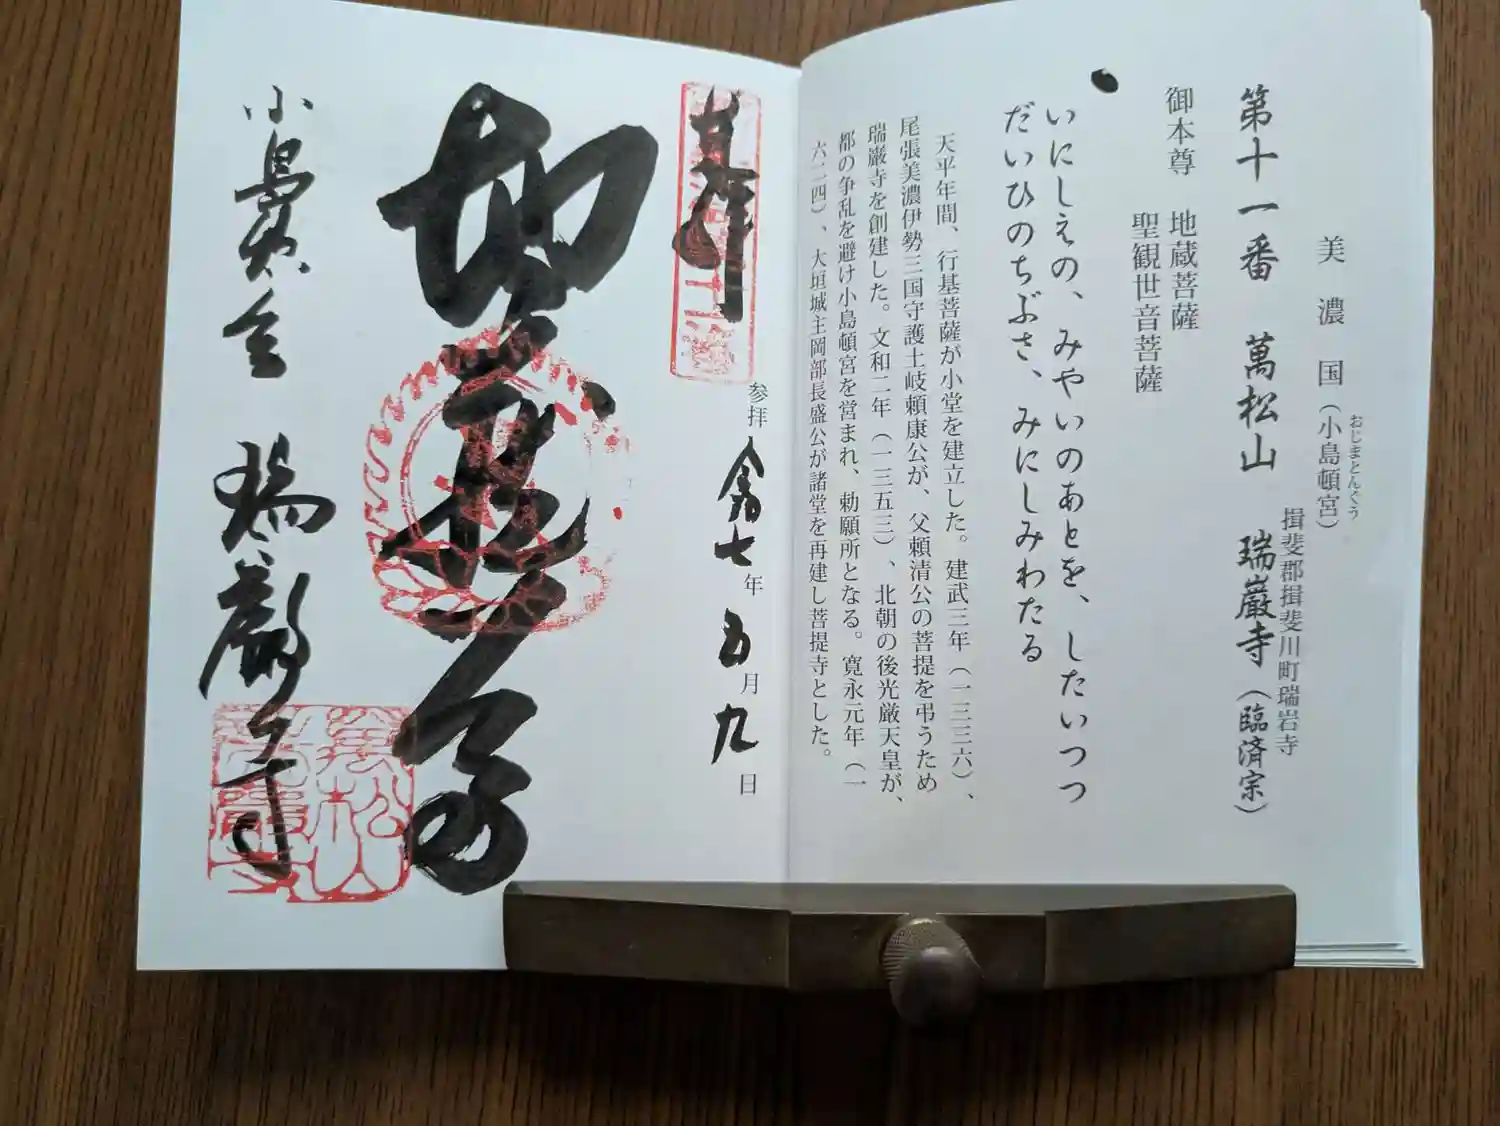 美濃国（小島頓宮）
おじまとんぐう
揖斐郡揖斐川町瑞岩寺
第十一番　萬松山　瑞巌寺（臨済宗）
御本尊　地蔵菩薩
聖観世音菩薩
いにしえの、みやいのあとを、したいつつ
だいひのちぶさ、みにしみわたる
天平年間、行基菩薩が小堂を建立した。建武三年（一三三六）、
尾張美濃伊勢三国守護土岐頼康公が、父頼清公の菩提を弔うため
瑞巌寺を創建した。文和二年（一三五三）、北朝の後光厳天皇が、
都の争乱を避け小島頓宮を営まれ、勅願所となる。寛永元年（一
六二四）、大垣城主岡部長盛公が諸堂を再建し菩提寺とした。
奉拝
参拝 令和七年 五月 九日
地蔵尊
小島頓宮 瑞巌寺
萬松山